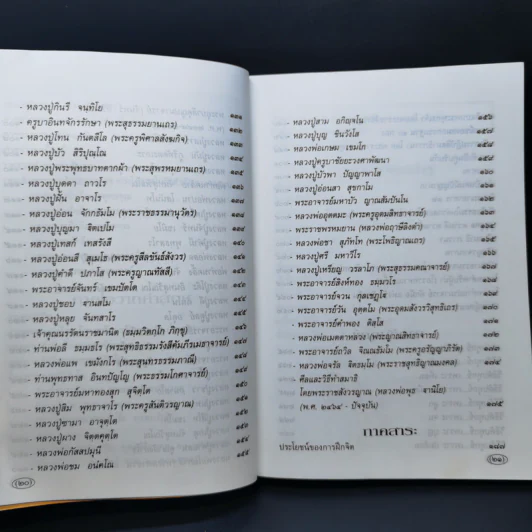 - หลวงปู่กินรี จนฺทิโย
- ครูบาอินทจักรรักษา (พระสุธรรมยานเถร) ๑๓๑
- หลวงปู่โทน กันตสีโล (พระครูพิศาลสังฆกิจ) ๑๓๓
- หลวงปู่บัว สิริปุณฺโณ ๑๓๔
- หลวงปู่พระพุทธบาทตากผ้า (พระสุพรหมยานเถร)
- หลวงปู่บุดดา ถาวโร
- หลวงปู่ฝั้น อาจาโร
- หลวงปู่อ่อน จักกธัมโม (พระราชธรรมานุวัตร)
- หลวงปู่บุญมา จิตเปโม
- หลวงปู่เทสก์ เทสรังสี
- หลวงปู่อ่อนสี สุเมโธ (พระครูสีลขันธ์สังวร)
- หลวงปู่คำดี ปภาโส (พระครูญาณทัสสี)
- พระอาจารย์จันทร์ เขมปัตโต
- หลวงปู่ชอบ ฐานสโม
- หลวงปู่หลุย จันทสาโร
- เจ้าคุณนรรัตนราชมานิต (ธมฺมวิตกฺโก ภิกฺขุ)
- ท่านพ่อลี ธมฺมธโร (พระสุทธิธรรมรังสีคัมภีรเมธาจารย์)
- หลวงพ่อแพ เขมังกโร (พระสุนทรธรรมภาณี)
- ท่านพุทธทาส อินทปัญโญ (พระธรรมโกศาจารย์)
- พระอาจารย์มหาทองสุก สุจิตฺโต
- หลวงปู่สิม พุทธาจาโร (พระครูสันติวรญาณ)
- หลวงปู่ชามา อาจุตฺโต
- หลวงปู่ผาง จิตตคุตโต
- หลวงพ่อกัสสปมุนี
- หลวงพ่อชม อนํคโณ ๑๕๕
(๒๐)
- หลวงปู่สาม อกิญฺจโน ๑๕๖
- หลวงปู่บุญ ชินวังโส ๑๕๗
- หลวงพ่อเกษม เขมโก ๑๕๘
- หลวงปู่ครูบาชัยยะวงศาพัฒนา ๑๕๙
- หลวงปู่บัวพา ปัญญาภาโส ๑๖๐
- หลวงปู่อ่อนสา สุขกาโม
- พระอาจารย์มหาบัว ญาณสัมปันโน ๑๖๒
- หลวงพ่ออุตตมะ (พระครูอุดมสิทธาจารย์) ๑๖๓
- พระราชพรหมยาน (หลวงพ่อฤาษีลิงดำ) ๑๖๔
- หลวงพ่อชา สุภัทโท (พระโพธิญาณเถร) ๑๖๕
- หลวงปู่ศรี มหาวีโร
- หลวงปู่เหรียญ วรลาโภ (พระสุธรรมคณาจารย์) ๑๖๗
- พระอาจารย์สิงห์ทอง ธมฺมวโร
- พระอาจารย์จวน กุลเชฏฺโฐ
- พระอาจารย์วัน อุตตโม (พระอุดมสังวรวิสุทธิเถร)
- พระอาจารย์คำพอง ติสโส
- หลวงพ่อเมตตาหลวง (พระญาณสิทธาจารย์)
- พระอาจารย์ถวิล จิณณธัมโม (พระครูอรัญญาภิวัต)
- หลวงพ่อจรัล ฐิตธมฺโม (พระราชสุทธิญาณมงคล)
- ศีลและวิธีทำสมาธิ
โดยพระราชสังวรญาณ (หลวงพ่อพุธ ฐานิโย)
(พ.ศ. ๒๔๖๔ - ปัจจุบัน) ๑๗๕
ภาคสาระ
ประโยชน์ของการฝึกจิต ๑๘๗
(๒๑)